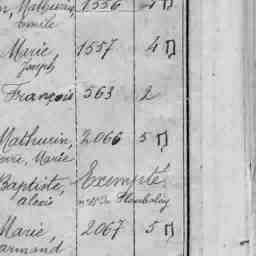 Mathurin, 1556
Emile
Marie 1557 4
Joseph
François 563 2
Mathurin, 2066 5
Marie
Baptiste, Exempté
alexis
Marie 2067 5
armand